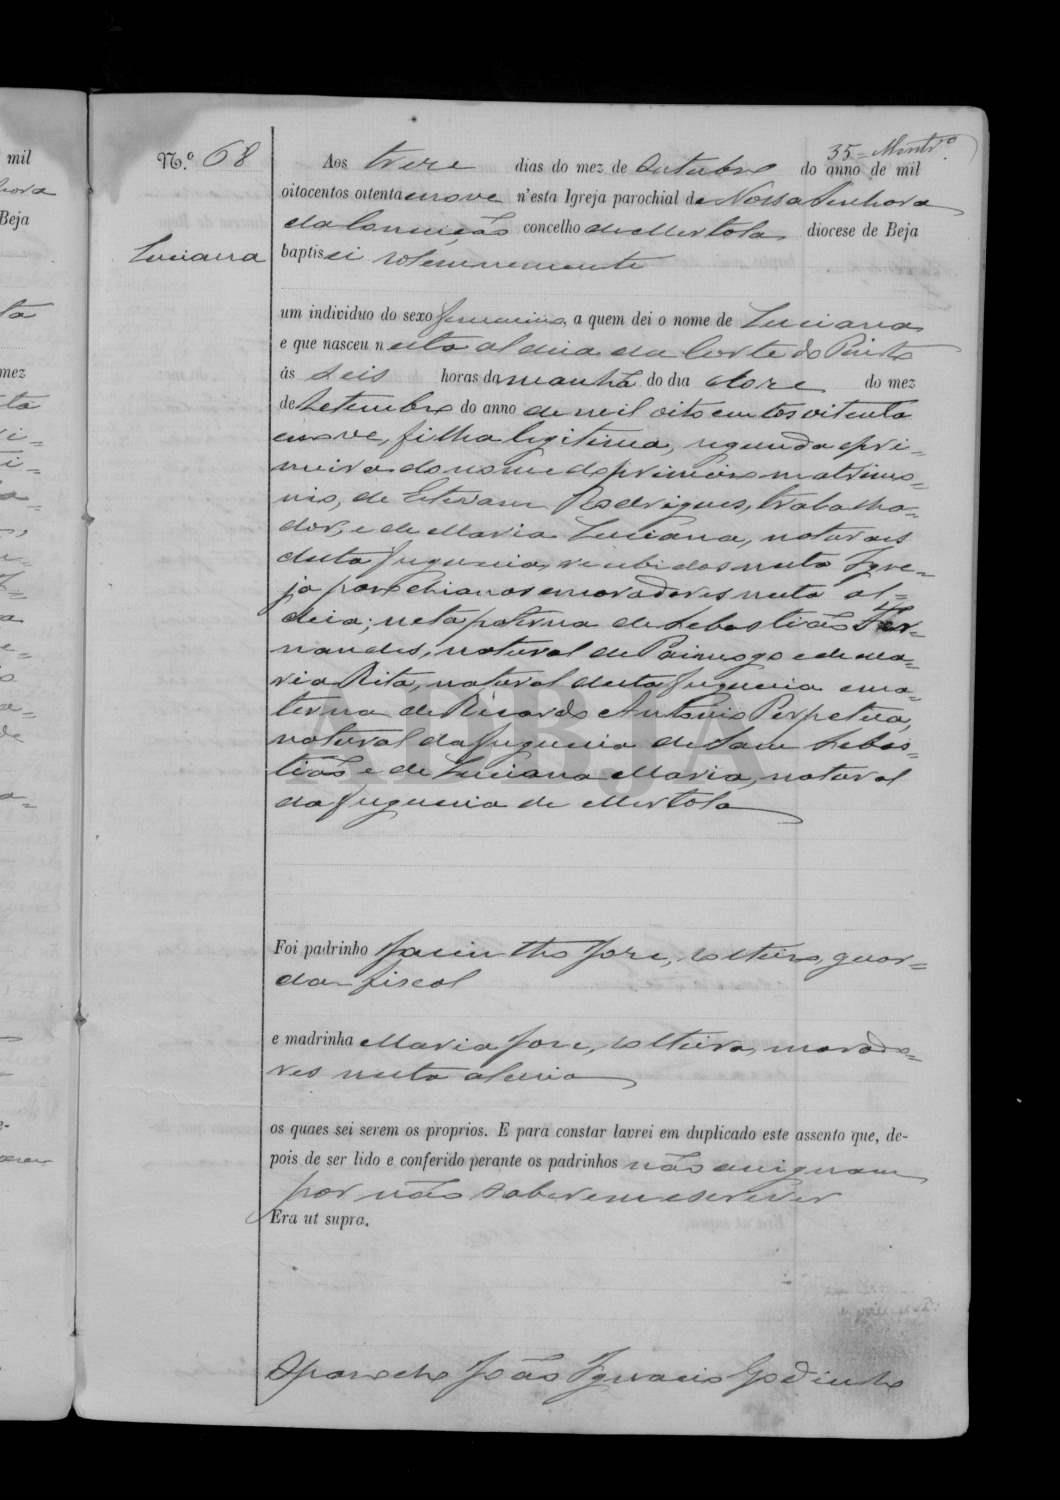 35 = Montr.º
N.º 68
Aos treze dias do mez de Outubro do anno de mil
oitocentos oitenta e nove n'esta Igreja parochial de Nossa Senhora
da Conceição concelho de Mertola diocese de Beja
Luciana
baptisei solemnemente
um individuo do sexo femenino, a quem dei o nome de Luciana
e que nasceu n esta aldeia da Corte do Pinto
ás seis horas da manhã do dia doze do mez
de Setembro do anno de mil oitocentos oitenta
e nove, filha legitima, segunda e pri-
meira do nome do primeiro matrimo-
nio, de Estevam Rodrigues, trabalha-
dor, e de Maria Luciana, naturaes
desta freguesia, recebidos nesta Igre-
ja parochianos e moradores nesta al-
deia; neta paterna de Sebastião Fer-
nandes, natural de Paimogo e de Ma-
ria Rita, natural desta freguesia e ma-
terna de Ricardo Antonio Perpetua,
natural da freguesia de Sam Sebas-
tião e de Luciana Maria, natural
da freguesia de Mertola
Foi padrinho Jacintho José, solteiro, guar-
da-fiscal
e madrinha Maria José, solteira, morado-
res nesta aldeia
os quaes sei serem os proprios. E para constar lavrei em duplicado este assento que, de-
pois de ser lido e conferido perante os padrinhos não assignam
por não saberem escrever
Era ut supra.
O parocho João Ignacio Godinho
ADBJA
mil
Beja
mez